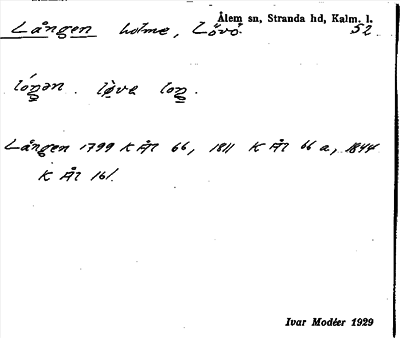 Ålem sn, Stranda hd, Kalm. l.
Lången holme, Lövö. 52.
lóŋən . lø̀va loŋ .
Lången 1799 K Äl 66, 1811 K Äl 66 a, 1844
K Äl 161.
Ivar Modéer 1929